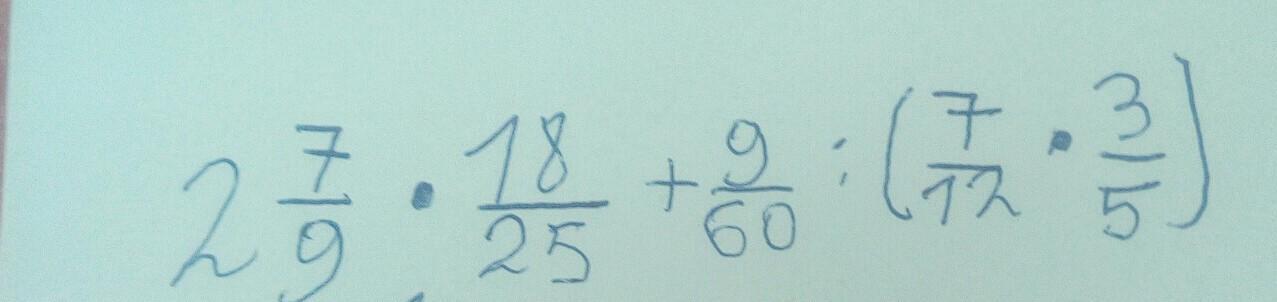 2 7/9 · 18/25 + 9/60 : (7/12 · 3/5)